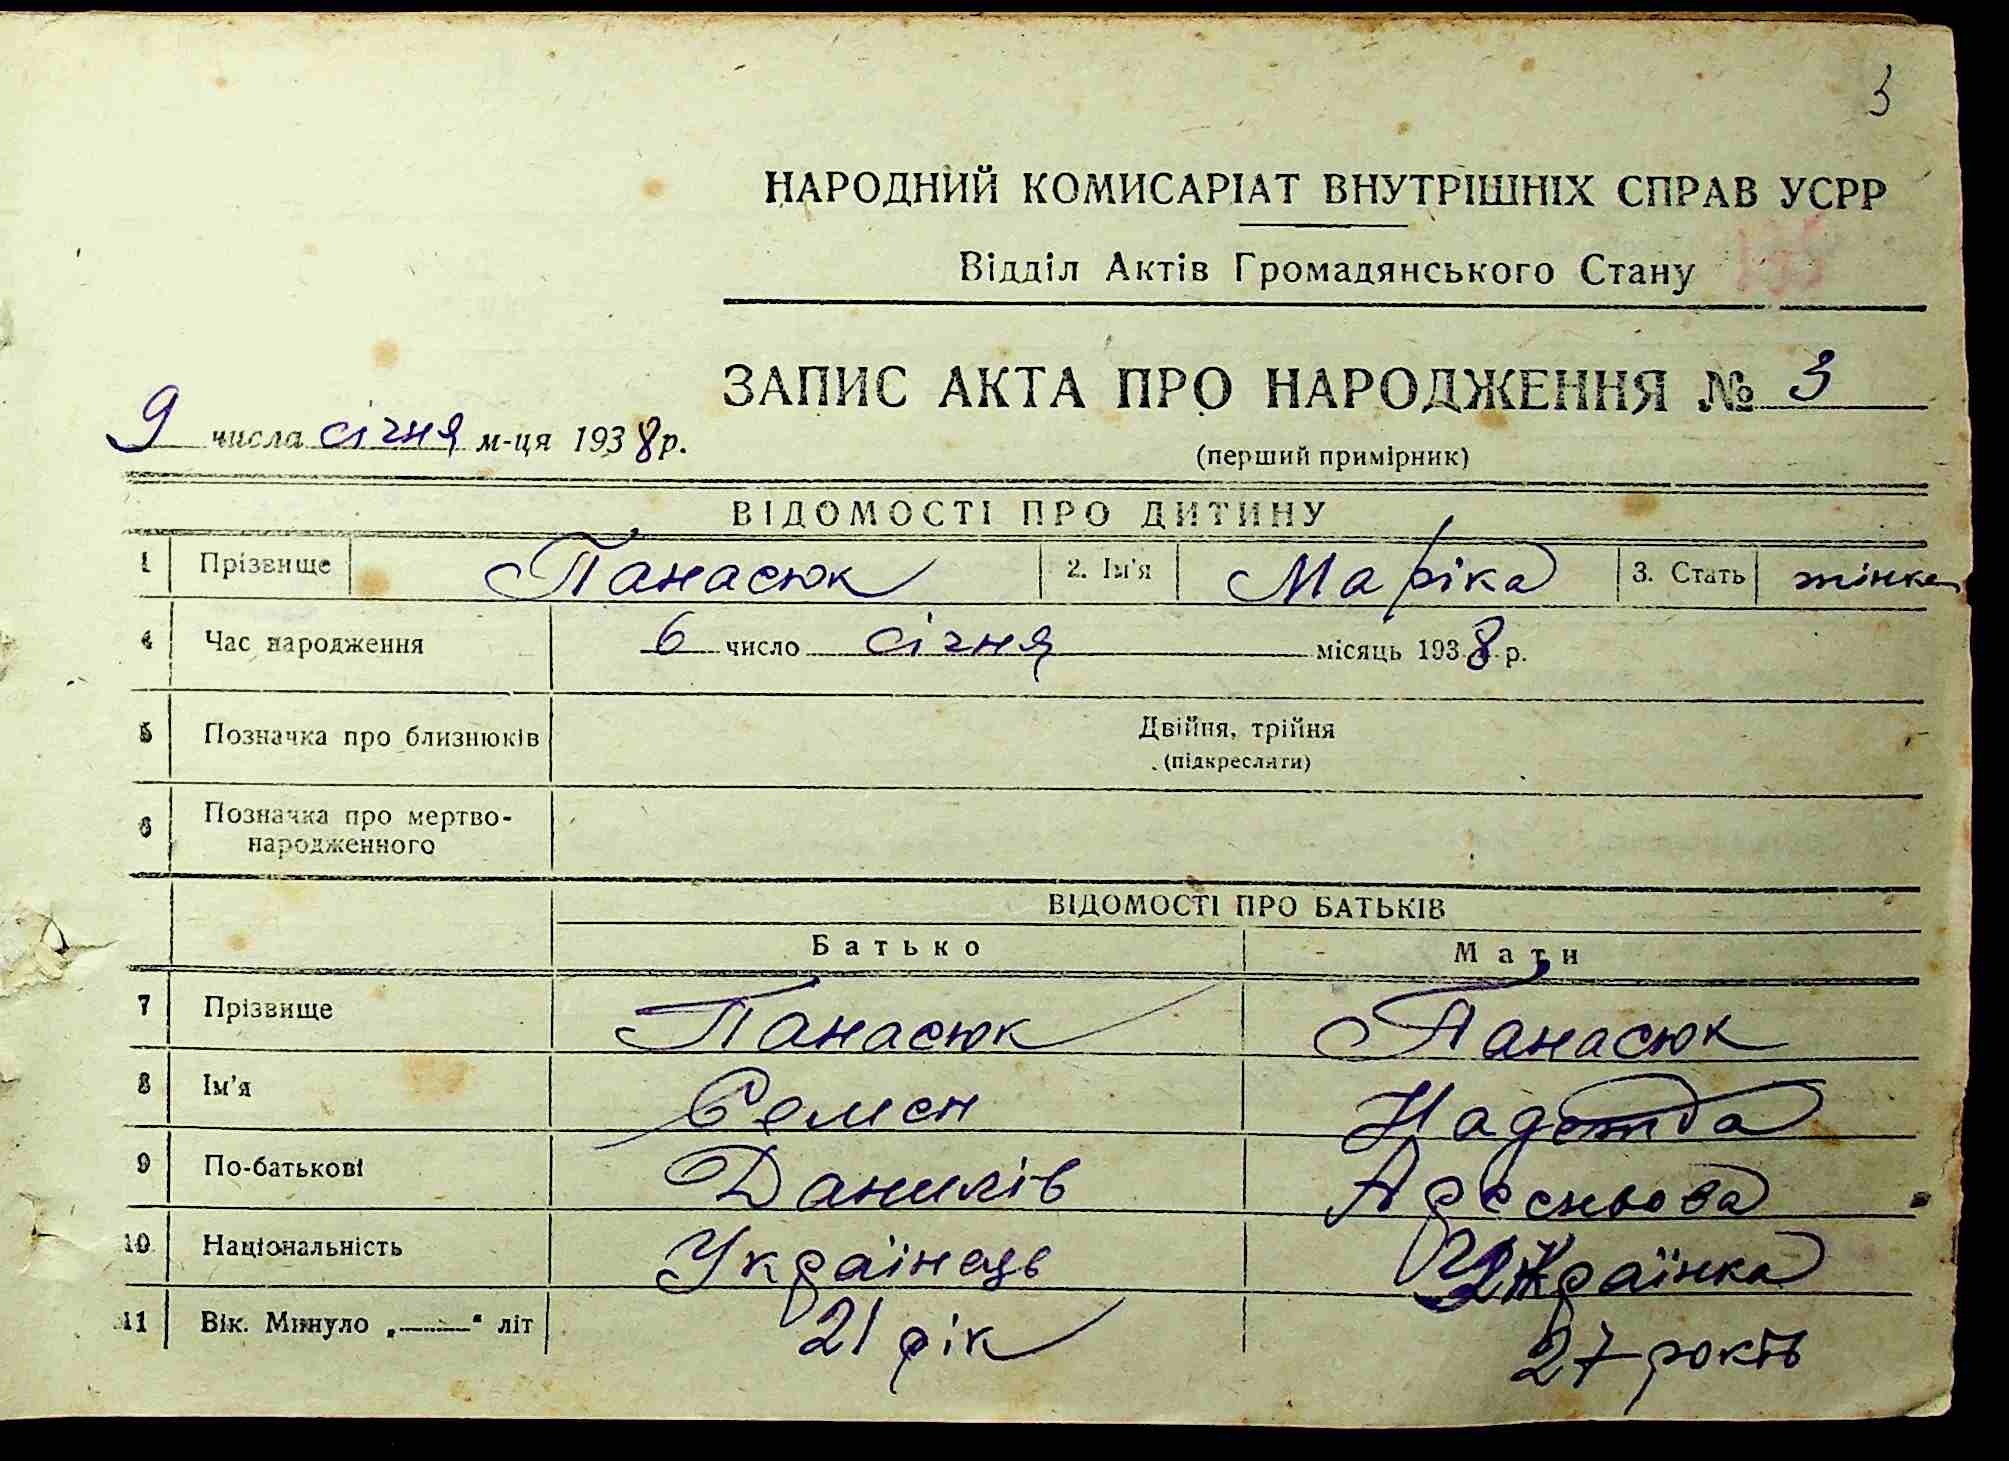 3
НАРОДНИЙ КОМИСАРІАТ ВНУТРІШНІХ СПРАВ УСРР
Відділ Актів Громадянського Стану
ЗАПИС АКТА ПРО НАРОДЖЕННЯ № 3
9 числа січня м-ця 1938 р.
(перший примірник)
ВІДОМОСТІ ПРО ДИТИНУ
1 Прізвище Панасюк 2. Ім'я Маріка 3. Стать жінка
4 Час народження 6 число січня місяць 1938 р.
5 Позначка про близнюків Двійня, трійня
(підкреслити)
6 Позначка про мертво-
народженного
ВІДОМОСТІ ПРО БАТЬКІВ
Батько Мати
7 Прізвище Панасюк Панасюк
8 Ім'я Семен Надежда
9 По-батькові Данилів Арсеньова
10 Національність Українець Українка
11 Вік. Минуло „ “ літ 21 рік 27 років